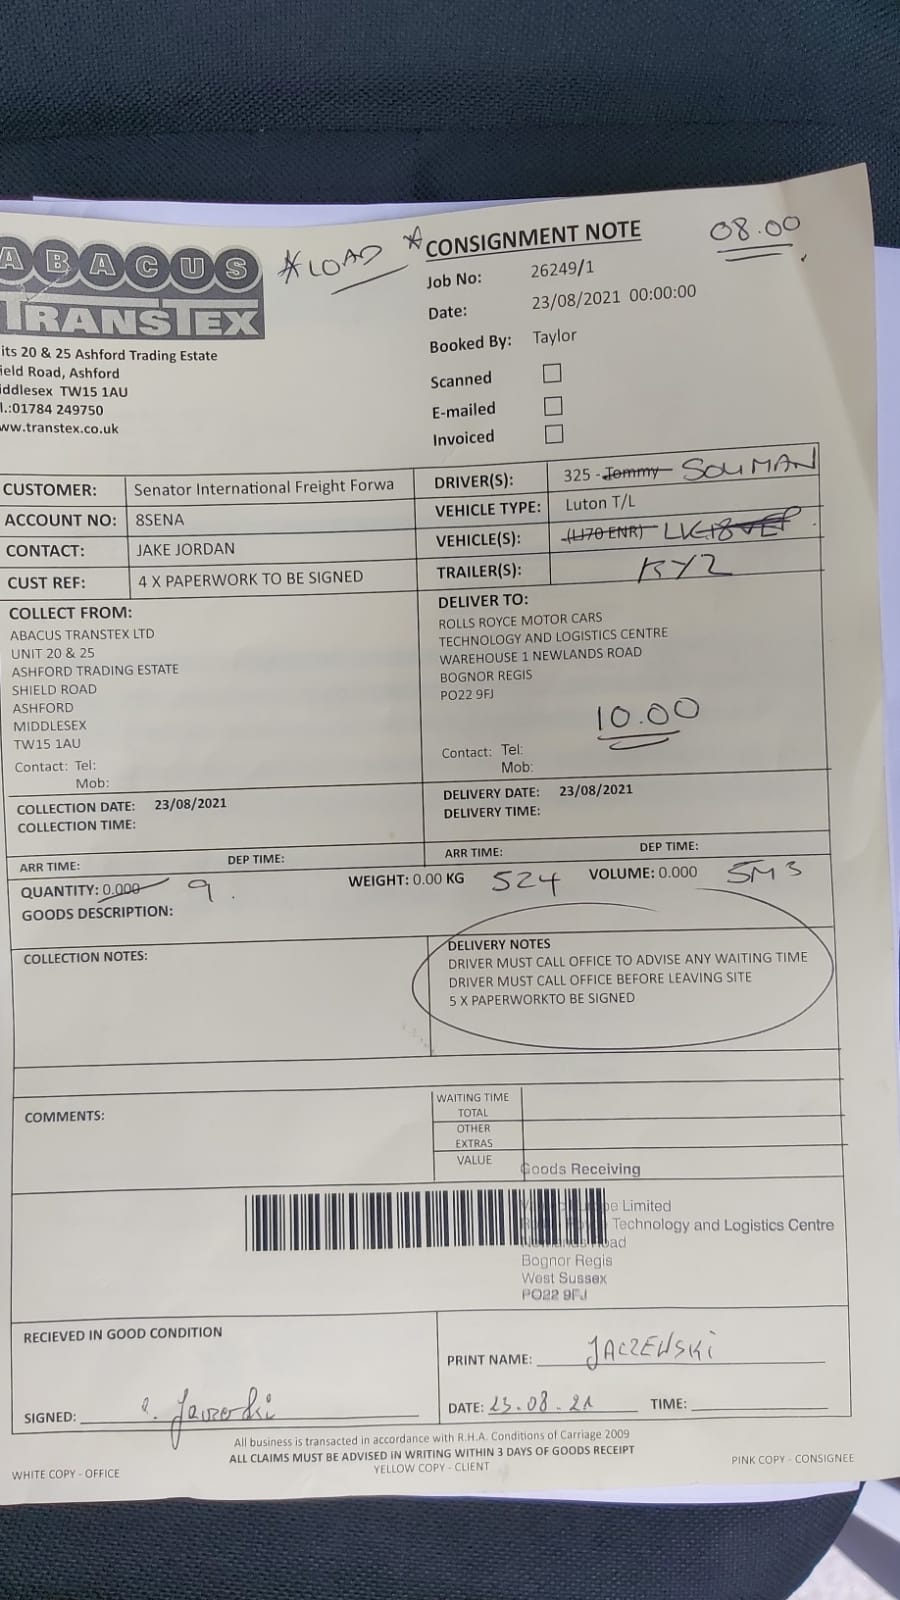 ABACUS
TRANSTEX
its 20 & 25 Ashford Trading Estate
ield Road, Ashford
iddlesex TW15 1AU
l.:01784 249750
ww.transtex.co.uk
*LOAD *
CONSIGNMENT NOTE
08.00
Job No: 26249/1
Date: 23/08/2021 00:00:00
Booked By: Taylor
Scanned
E-mailed
Invoiced
CUSTOMER: Senator International Freight Forwa
ACCOUNT NO: 8SENA
CONTACT: JAKE JORDAN
CUST REF: 4 X PAPERWORK TO BE SIGNED
DRIVER(S): 325 - Tommy SOLIMAN
VEHICLE TYPE: Luton T/L
VEHICLE(S): (LJ70 ENR)
TRAILER(S): KYZ
COLLECT FROM:
ABACUS TRANSTEX LTD
UNIT 20 & 25
ASHFORD TRADING ESTATE
SHIELD ROAD
ASHFORD
MIDDLESEX
TW15 1AU
Contact: Tel:
Mob:
DELIVER TO:
ROLLS ROYCE MOTOR CARS
TECHNOLOGY AND LOGISTICS CENTRE
WAREHOUSE 1 NEWLANDS ROAD
BOGNOR REGIS
PO22 9FJ
10.00
Contact: Tel:
Mob:
COLLECTION DATE: 23/08/2021
COLLECTION TIME:
DELIVERY DATE: 23/08/2021
DELIVERY TIME:
ARR TIME: DEP TIME:
ARR TIME: DEP TIME:
QUANTITY: 0.000 9. WEIGHT: 0.00 KG 524 VOLUME: 0.000 5M3
GOODS DESCRIPTION:
COLLECTION NOTES:
DELIVERY NOTES
DRIVER MUST CALL OFFICE TO ADVISE ANY WAITING TIME
DRIVER MUST CALL OFFICE BEFORE LEAVING SITE
5 X PAPERWORKTO BE SIGNED
COMMENTS:
WAITING TIME
TOTAL
OTHER
EXTRAS
VALUE
Goods Receiving
Limited
Technology and Logistics Centre
Road
Bognor Regis
West Sussex
PO22 9FJ
RECIEVED IN GOOD CONDITION
SIGNED:
PRINT NAME: JACZEWSKI
DATE: 23.08.21 TIME:
All business is transacted in accordance with R.H.A. Conditions of Carriage 2009
ALL CLAIMS MUST BE ADVISED IN WRITING WITHIN 3 DAYS OF GOODS RECEIPT
WHITE COPY - OFFICE YELLOW COPY - CLIENT PINK COPY - CONSIGNEE